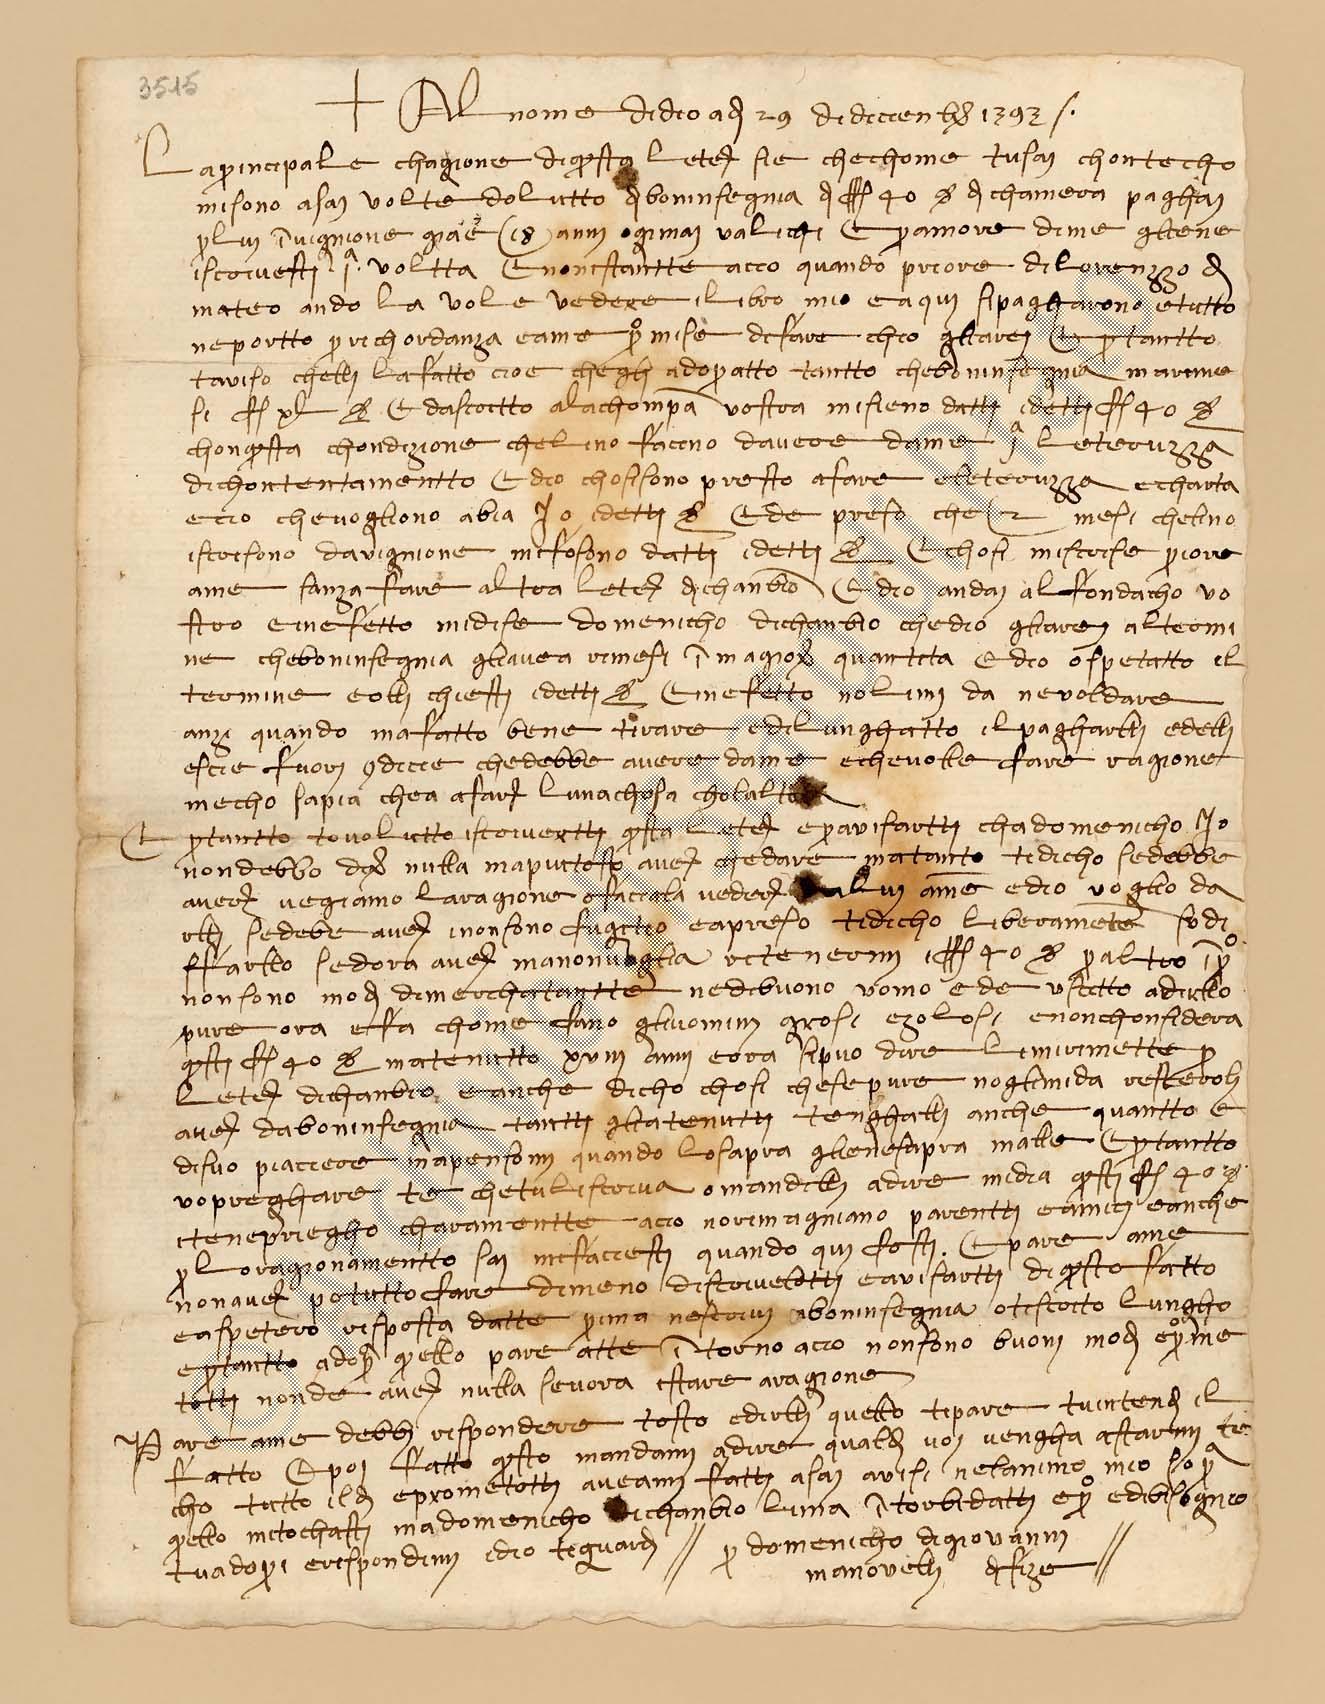 3515
+ Al nome di dio adì 29 di dicienbre 1393
La principale chagione di questa letera si è che chome tu sai chontecho
mi sono asai volte doluto di boninsegnia di fior 40 d di chamera paghai
per lui i vignione già è (18) anni ogimai valichi E per amore di me gliene
iscrivesti 1ª voltta E nonistantte acò quando priore di lorenzzo di
mateo andò la volle vedere i libro mio e a qui si pagharono e tutto
ne portto per richordanza e a me promise di fare ch'io gli arei E per tantto
t'aviso ch'elli l'à fatto cioè ch'egli adopratto tantto che boninsegnia in arme
si fior xl d E da scritto a la chompa vostra mi sieno datti i detti fior 40 d
chon questa chondizione ch'elino facino d'avere da me 1ª leteruzza
di chontentamentto Ed io chosì sono presto a fare e leteruzza e charta
e ciò che vogliono abia io i detti d Ed è preso che 2 mesi ch'elino
iscrisono da vignione mi fosono datti i detti d E chosì mi scrise priore
a me sanza fare altra letera di chanbio Ed io andai al fondacho vo
stro e in efetto mi dise domenicho di chanbio ched io gli arei al termi
ne che boninsegnia gli avea rimesi i magiore quantita Ed io ò spetatto il
termine e olli chiesti i detti d E in efetto no li mi da nè vol dare
anzi quando m'à fatto bene tirare e dilunghatto il pagharlli ed elli
escie fuori e dicie che debbe avere da me e che volle fare ragione
mecho sapia che a a fare l'una chosa cho l'altra
E per tantto t'ò volutto iscrivertti questa letera e per avisartti ch'a domenicho io
non debbo dare nulla ma piutosto avere che dare ma tanto ti dicho se debbe
avere vegiamo la ragione e faciala vedere a lui a me ed io voglio da
rlli se debe avere i non sono fugitio e apreso ti dicho liberamete sodi
sfarllo se dora avere ma non voglia ritenermi i fior 40 d per altro in però
non sono modi di merchatantte nè di buono uomo ed è usitto a dirllo
pure ora e fa chome fano gli uomini grosi e zolosi e non chonsidera
questi fior 40 d m'à tenutto xviii anni e ora si può dire li mi rimette per
letera di chanbio e anche dicho chosì che se pure no gli mi da resterolli
avere da boninsegnia tantti gli à tenutti tenghalli anche quantto è
di suo piaciere ma pensomi quando lo saprà gliene saprà malle E per tantto
vo preghare te che tu li scriva o mandi lli a dire mi dia questi fior 40 d
i te ne priegho charamentte aciò no rimagniano parentti e amici e anche
per lo ragionamentto sai mi faciesti quando qui fosti E pare a me
non avere potutto fare di meno di scrivelotti e avisartti di questo fatto
e aspeterò risposta da tte prima ne scrivi a boninsegnia o ti scritto lungho
e per tantto adopra quello pare a tte i torno aciò non sono buoni modi e prome
totti non dè avere nulla se vora istare a ragione
Pare a me debbi rispondere tosto e dirlli quello ti pare tu intendi il
fatto E poi fatto questo mandami a dire qual dì voi vengha a starmi te
cho tutto il dì e prometotti aveami fatti asai avisi ne l'animo mio sopra
quello mi tochasti ma domenicho di chanbio l'una i torbidatti e però e di bisognio
tu adopri e rispondimi idio ti guardi // per domenicho di giovanni
manovelli di fize //